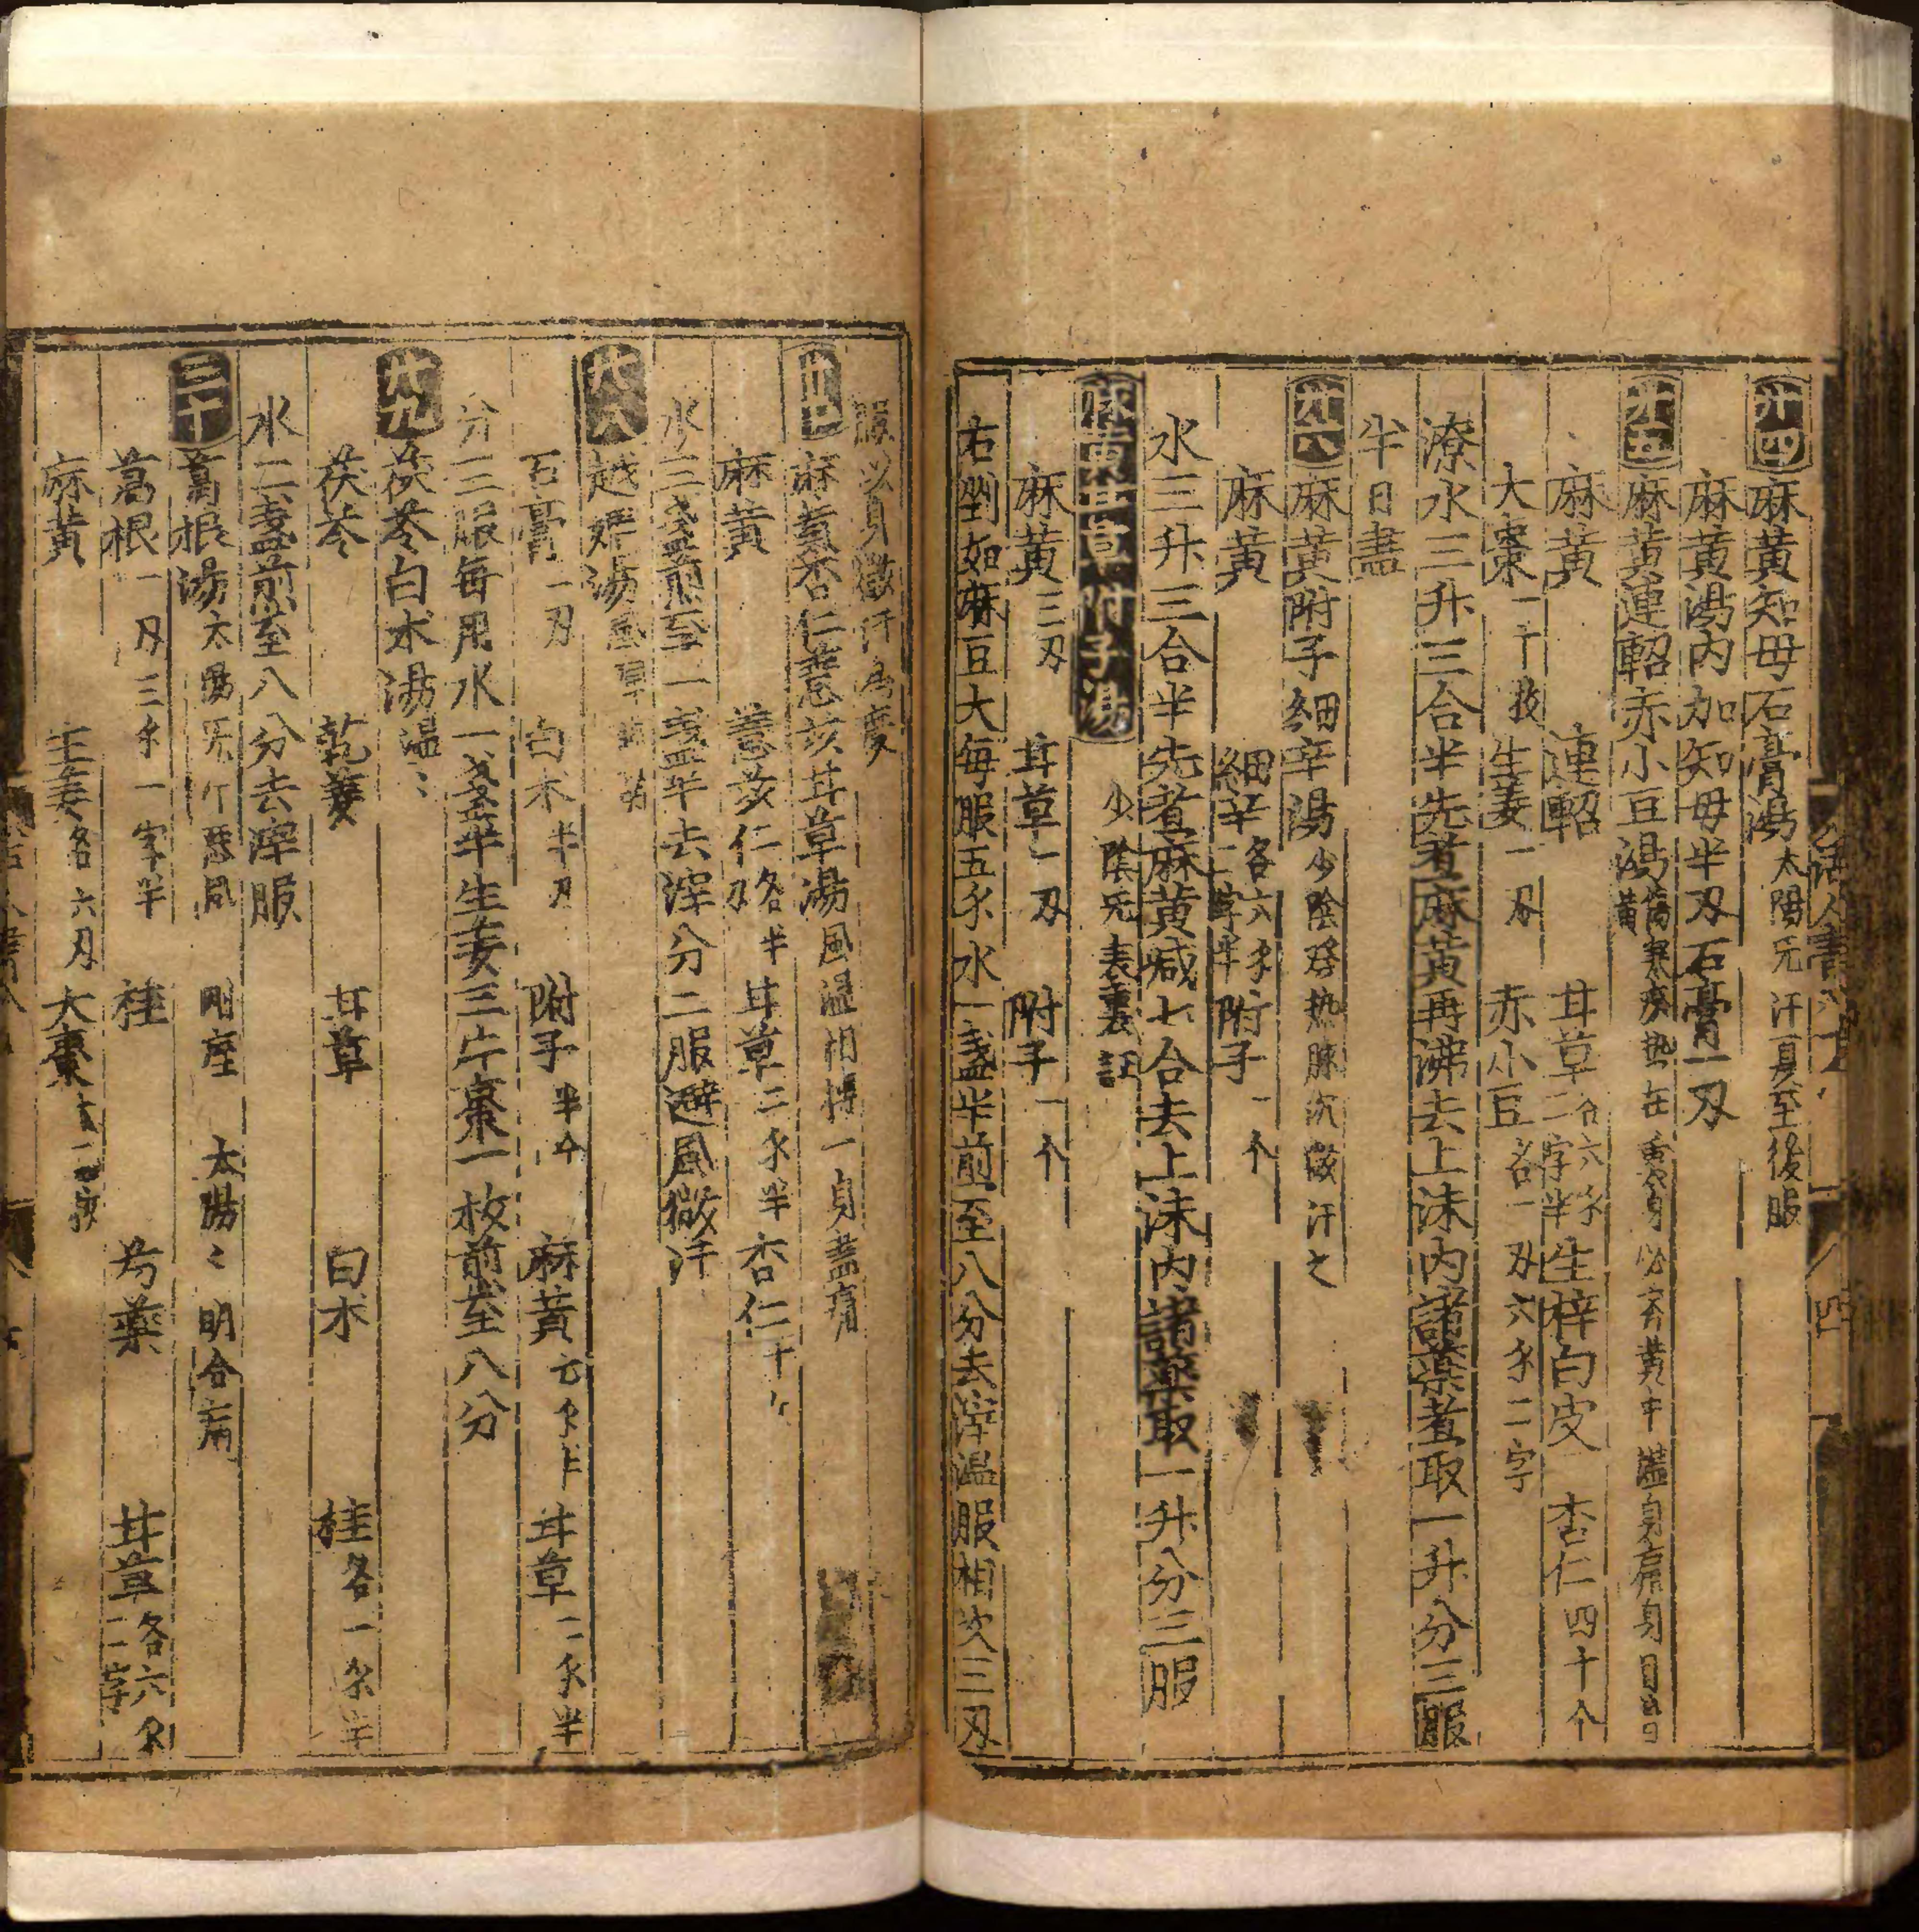 廿四 麻黄知母石膏湯 太陽无汗 夏至後服
麻黄湯内加知母半刄石膏一刄
廿五 麻黄連軺赤小豆湯 傷寒瘀热在裏身必發黄
麻黄 連軺 甘草 各六尒二字半 生梓白皮 杏仁四十个
大棗一十枚 生姜一刄 赤小豆 各一刄六尒二字
潦水三升三合半先煮麻黄再沸去上沫内諸藥煮取一升分三服
半日盡
廿六 麻黄附子細辛湯 少陰發热脉沉微汗之
麻黄 細辛 各六尒二字半 附子一个
水三升三合半先煮麻黄减七合去上沫内諸薬取一升分三服
麻黄甘草附子湯 少陰无表裏証
麻黄三刄 甘草一刄 附子一个
右剉如麻豆大每服五尒水一盞半煎至八分去滓温服相次三刄
服以身微汗為度
廿七 麻黄杏仁薏苡甘草湯 風湿相搏一身盡痛
麻黄 薏苡仁各半刄 甘草二尒半 杏仁十
水三盞煎至一盞半去滓分二服避風微汗
廿八 越婢湯
石膏一刄 白术半刄 附子半个 麻黄 甘草二尒半
分三服每用水一盞半生姜三片棗一枚煎至八分
廿九 茯苓白术湯
茯苓 乾姜 甘草 白术 桂各一尒半
水二盞煎至八分去滓服
三十 葛根湯 太陽无汗惡風 剛痓 太陽〻明合病
葛根一刄三尒一字半 桂 芍藥 甘草各六尒二字
麻黄 生姜各六刄 大棗十二枚